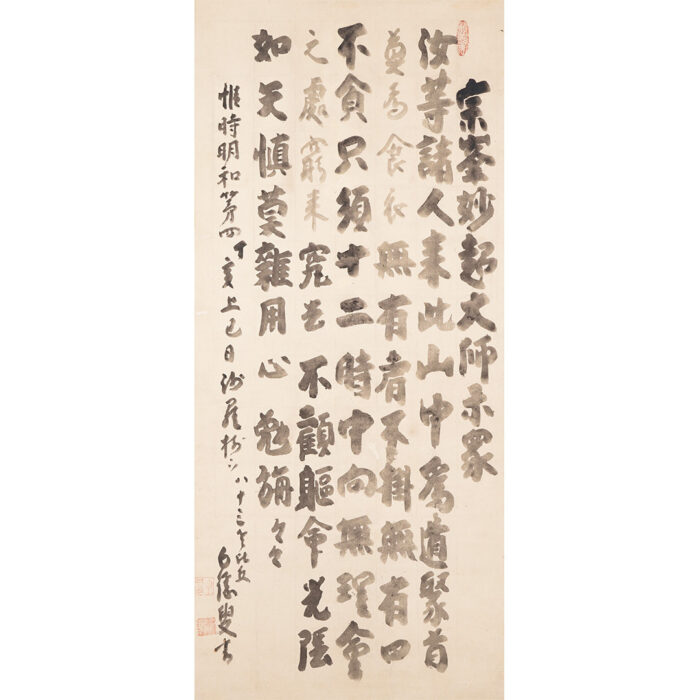 宗峯妙超大師示衆
汝等諸人来此山中為道聚首
莫為食衣無有肩不掛無有口
不食只須十二時中向無理會
之處窮来究去不顧軀命光陰
如矢慎莫雜用心勉旃々々
惟時明和第四丁亥上巳日沙羅樹下八十三老比丘
白隱叟書